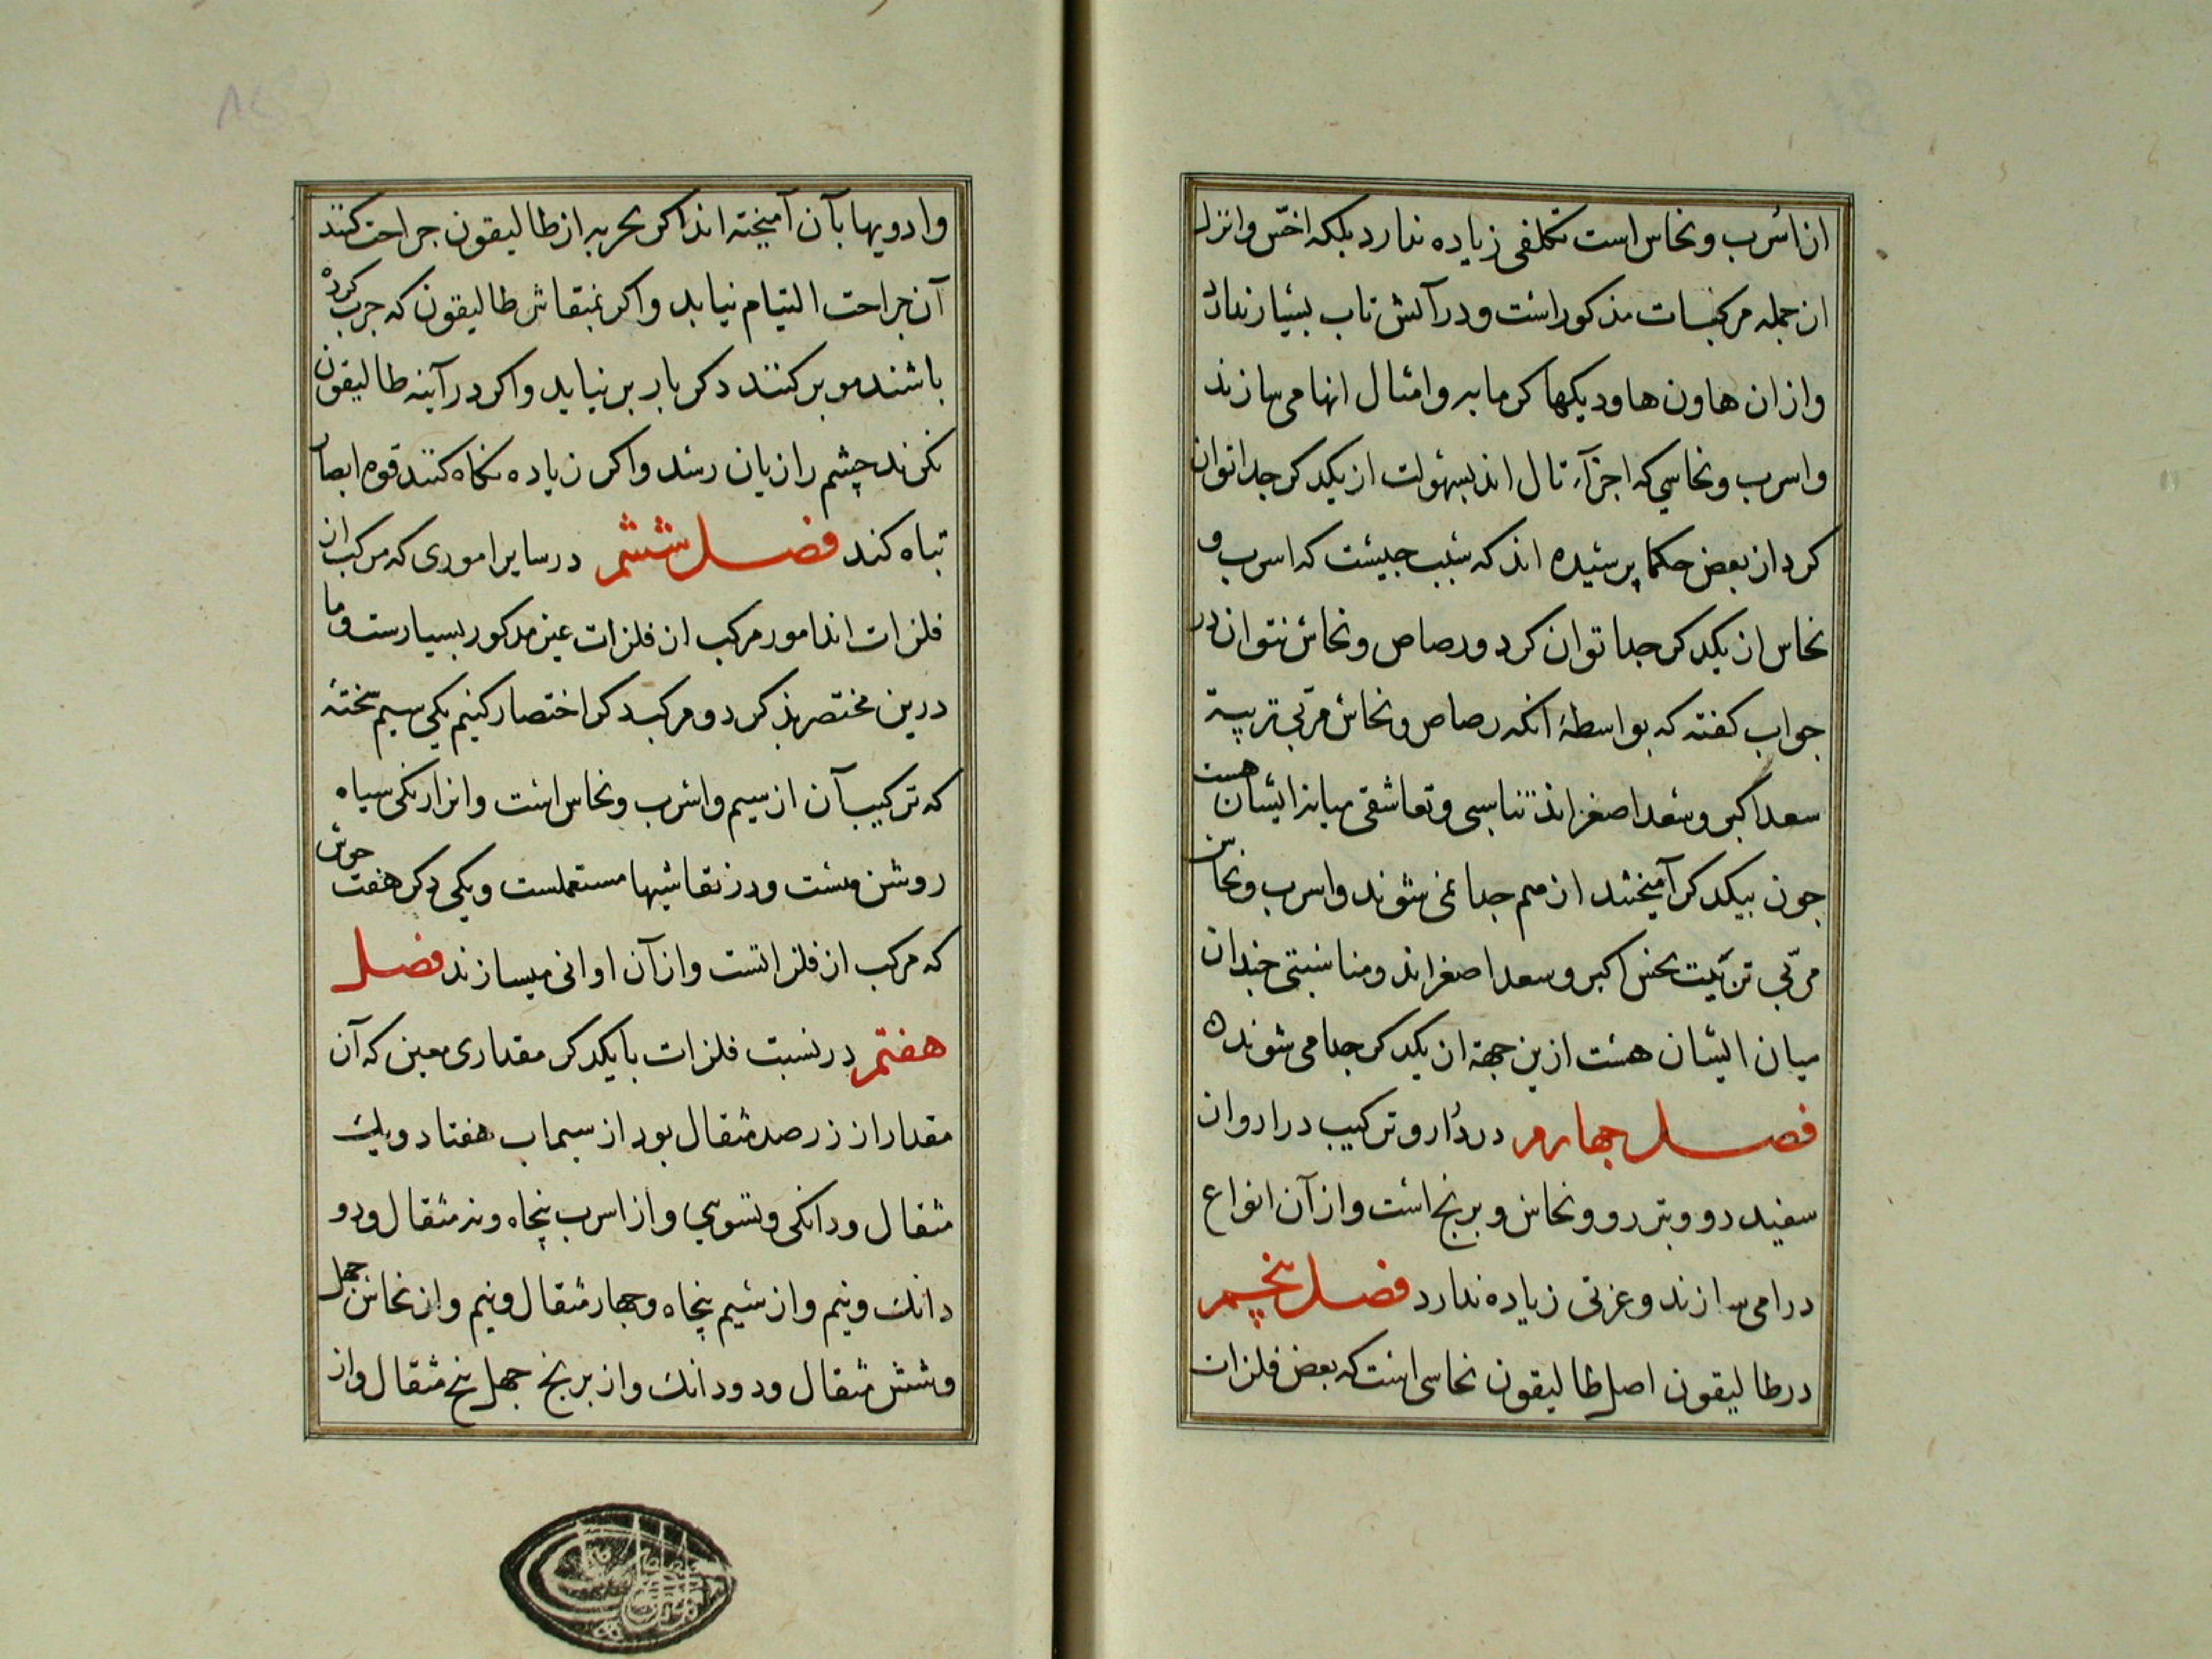 از اسرب و نحاس است تکلفی زیاده ندارد بلکه اخس و انزل
از جمله مرکبات مذکور است و در آتش تاب بسیار ندارد
و از ان هاون ها و دیکها کرمابه و امثال انها می سازند
و اسرب و نحاسی که اجزآء تال اند بسهولت از یکدکر جدا توان
کرد از بعض حکما پرسیده اند که سبب جیست که اسرب و
نحاس از یکدکر جدا توان کرد و رصاص و نحاس نتوان در
جواب کفته که بواسطهٔ انکه رصاص و نحاس مربی تربیة
سعد اکبر و سعد اصغر اند تناسبی و تعاشقی میانه ایشان هست
جون بیکدکر آمیختند از هم جدا نمی شوند و اسرب و نحاس
مربی تربیت نحس اکبر و سعد اصغر اند و مناسبتی جندان
میان ایشان هست ازین جهة از یکدکر جدا می شوند
فصل جهارم در دارو ترکیب درا روان
سفید رو و بتر رو و نحاس و برنج است و از آن انواع
درا می سازند و عزتی زیاده ندارد فصل پنجم
در طالیقون اصل طالیقون نحاسی است که بعض فلزات
و ادویها بآن آمیخته اند اکر بحربه از طالیقون جراحت کنند
آن جراحت التیام نیابد و اکر بمنقاش طالیقون که جرب کرده
باشند مو بر کنند دکر بار بر نیاید و اکر در آینه طالیقون
نکرند چشم را زیان رسد و اکر زیاده نکاه کنند قوه ابصار
تباه کند فصل ششم در سایر اموری که مرکب از
فلزات اند امور مرکب از فلزات غیر مذکور بسیارست و ما
درین مختصر بذکر دو مرکب دکر اختصار کنیم یکی سیم تخته
که ترکیب آن از سیم و اسرب و نحاس است و انرا رنکی سیاه
روشن هست و در نقاشیها مستعملست و یکی دکر هفت جوش
که مرکب از فلزاتست و از آن اوانی میسازند فصل
هفتم در نسبت فلزات با یکدکر مقداری معین که آن
مقدار از زر صد مثقال بود از سیماب هفتاد و یک
مثقال و دانکی و تسوی و از اسرب پنجاه و نه مثقال و دو
دانک و نیم و از سیم پنجاه و جهار مثقال و نیم و از نحاس جهل
و شش مثقال و دو دانک و از برنج جهل پنج مثقال و از